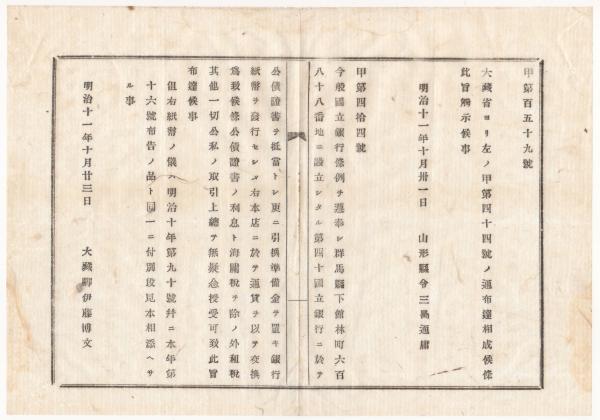 甲第百五十九號
大藏省ヨリ左ノ甲第四十四號ノ通布達相成候條
此旨觸示候事
明治十一年十月卅一日　山形縣令三島通庸
甲第四拾四號
今般國立銀行條例ヲ遵奉シ群馬縣下舘林町六百
八十八番地ニ設立シタル第四十國立銀行ニ於テ
公債證書ヲ抵當トシ更ニ引換準備金ヲ置キ銀行
紙幣ヲ發行セシメ右本店ニ於テ通貨ヲ以テ交換
爲致候條公債證書ノ利息ト海關稅ヲ除ノ外租稅
其他一切公私ノ取引上總テ無疑念授受可致此旨
布達候事
但右紙幣ノ儀ハ明治十年第九十號幷ニ本年第
十六號布告ノ品ト同一ニ付別段見本相添ヘサ
ル事
明治十一年十月廿三日　大藏卿伊藤博文